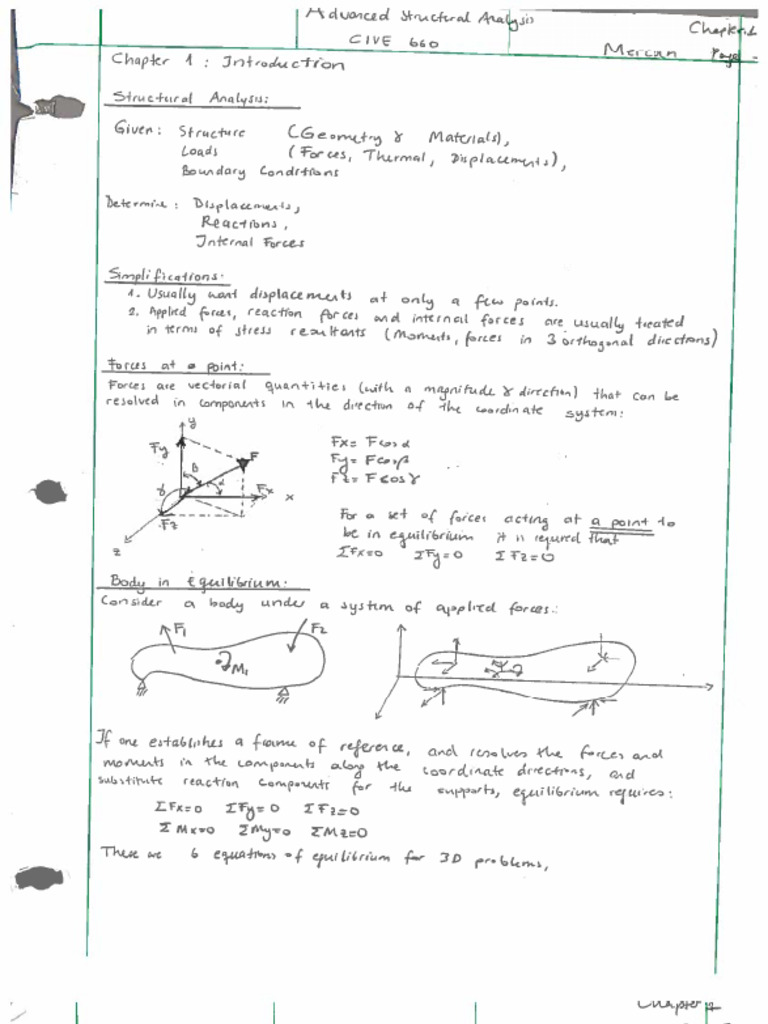 Advanced Structural Analysis
CIVE 660
Mercan
Chapter 1
Page
Chapter 1 : Introduction
Structural Analysis:
Given: Structure (Geometry & Materials),
Loads (Forces, Thermal, Displacements),
Boundary Conditions
Determine: Displacements,
Reactions,
Internal Forces
Simplifications:
1. Usually want displacements at only a few points.
2. Applied forces, reaction forces and internal forces are usually treated
in terms of stress resultants (Moments, forces in 3 orthogonal directions)
Forces at a point:
Forces are vectorial quantities (with a magnitude & direction) that can be
resolved in components in the direction of the coordinate system:
y
Fy
F
β
α
γ
Fx
x
Fz
z
Fx = F cos α
Fy = F cos β
Fz = F cos γ
For a set of forces acting at a point to
be in equilibrium it is required that
ΣFx=0 ΣFy=0 ΣFz=0
Body in Equilibrium:
Consider a body under a system of applied forces:
F1
F2
M1
If one establishes a frame of reference, and resolves the forces and
moments in the components along the coordinate directions, and
substitute reaction components for the supports, equilibrium requires:
ΣFx=0 ΣFy=0 ΣFz=0
ΣMx=0 ΣMy=0 ΣMz=0
These are 6 equations of equilibrium for 3D problems,
Chapter 1